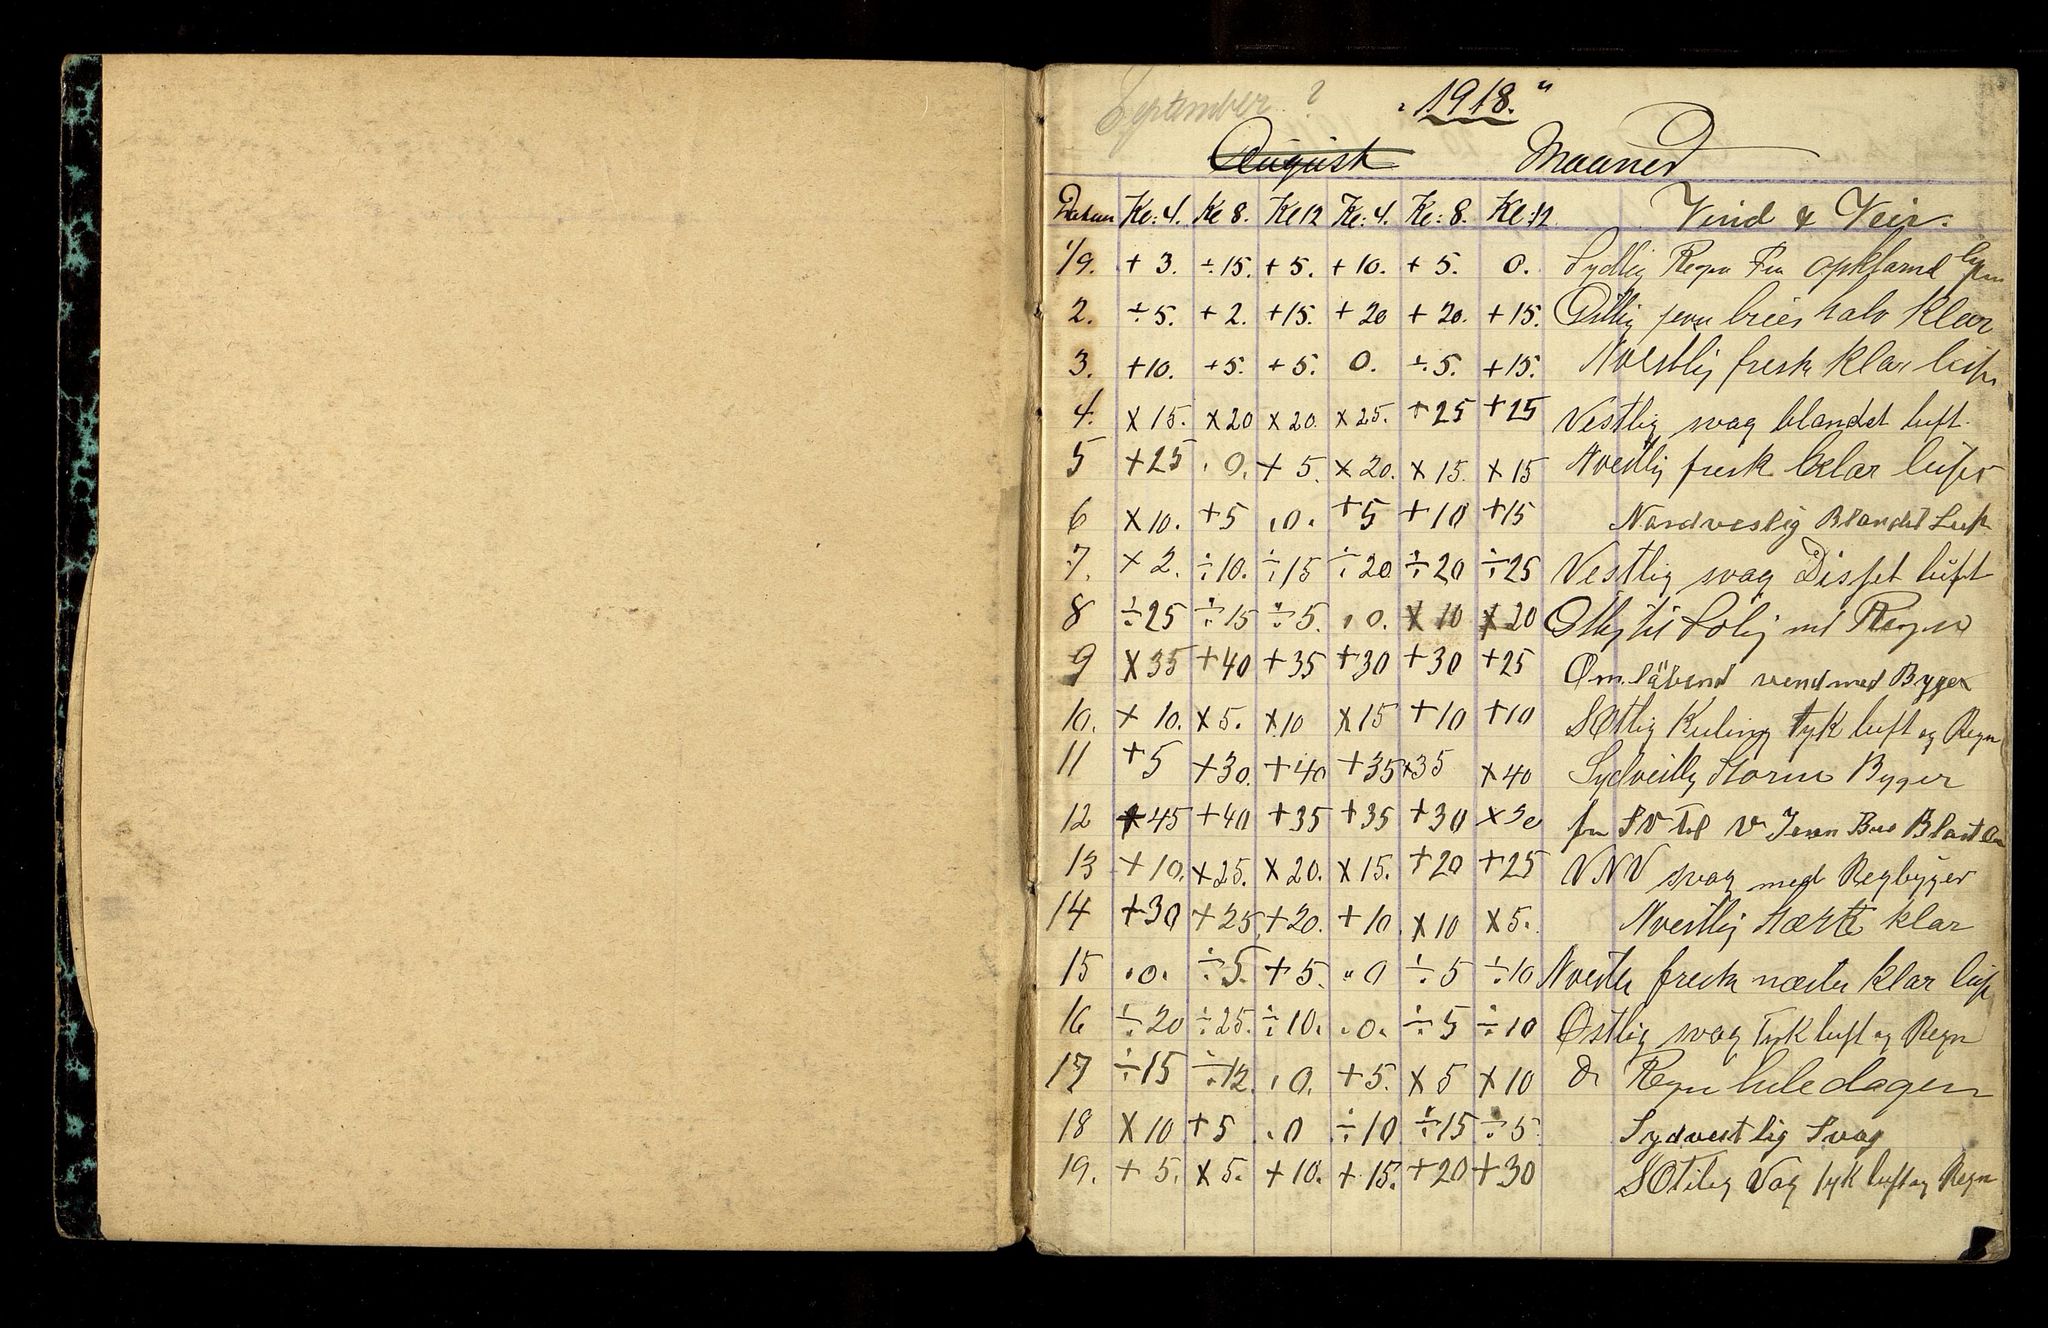 September ?
„1918."
August Maaned
Datum Kl: 4. Kl 8. Kl 12 Kl: 4. Kl: 8. Kl: 12. Vind & Veir.
1/9. + 3. ÷ 15. + 5. + 10. + 5. 0. Sydlig Regn Fra
2. ÷ 5. + 2. + 15. + 20 + 20. + 15. Østlig jevn bries halv Klar
3. + 10. + 5. + 5. 0. ÷ 5. + 15. Nvestlig fresk Klar luft
4. × 15. × 20 × 20. × 25. + 25 + 25 Vestlig svag blandet luft.
5 + 25 . 0. + 5. × 20. × 15. × 15 Nvestlig fresk klar luft
6 × 10. + 5 . 0. + 5 + 10 + 15 Nordvestlig Blandet Luft
7. × 2. ÷ 10. ÷ 15 ÷ 20 ÷ 20 ÷ 25 Vestlig svag Disset luft
8 ÷ 25 ÷ 15 ÷ 5. . 0. × 10 × 20 Østlig til med Regn
9 × 35 + 40 + 35 + 30 + 30 + 25 Omløbend vend med Byger
10. + 10. × 5. × 10 × 15 + 10 + 10 SØtlig Kuling tyk luft og Regn
11 + 5 + 30. + 40 + 35 × 35 × 40 Sydvestlig Storm Byger
12 + 45 + 40 + 35 + 35 + 30 × 30 fra SV Til V Jevn Bris
13 + 10. × 25. × 20. × 15. + 20 + 25 VNV svag med Regbyger
14 + 30 + 25. + 20. + 10. × 10 × 5. Nvestlig stærk klar
15 . 0. ÷ 5. + 5. „ 0 ÷ 5 ÷ 10 fresk næsten klar luft
16 ÷ 20 ÷ 25. ÷ 10. . 0. ÷ 5 ÷ 10 Østlig svag Tyk luft og Regn
17 ÷ 15 ÷ 12. . 0. + 5. × 5 × 10 Do Regn hele dagen
18 × 10 + 5 . 0 ÷ 10 ÷ 15 ÷ 5. Sydvestlig Svag
19. + 5. × 5. + 10. + 15. + 20 + 30 SØtlig Vag tyk luft og Regn